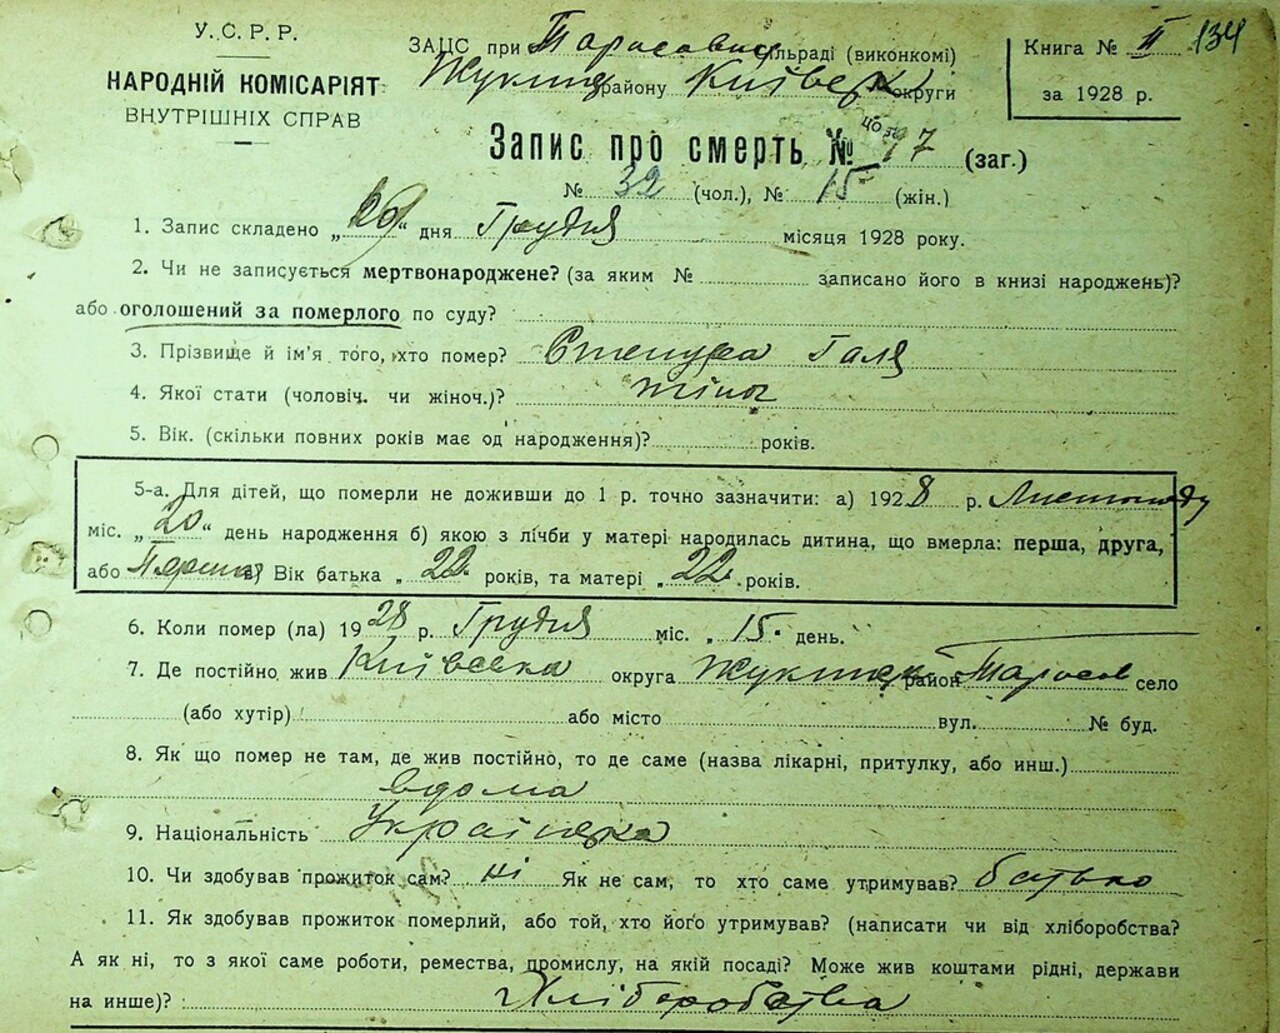 У.С.Р.Р.
НАРОДНІЙ КОМІСАРІЯТ
ВНУТРІШНІХ СПРАВ
ЗАЦС при Тарасович сільраді (виконкомі)
Жукин району Київськ округи
Книга № II 134
за 1928 р.
Запис про смерть № 77 (заг.)
№ 32 (чол.), № 15 (жін.)
1. Запис складено „ “ дня Грудня місяця 1928 року.
2. Чи не записується мертвонароджене? (за яким № записано його в книзі народжень)?
або оголошений за померлого по суду?
3. Прізвище й ім'я того, хто помер? Галя
4. Якої стати (чоловіч. чи жіноч.)? жіноч
5. Вік. (скільки повних років має од народження)? років.
5-а. Для дітей, що померли не доживши до 1 р. точно зазначити: а) 1928 р. Листопаду
міс. „20“ день народження б) якою з лічби у матері народилась дитина, що вмерла: перша, друга,
або Перша Вік батька „22 років, та матері „22 років.
6. Коли помер (ла) 1928 р. Грудня міс. „15 день.
7. Де постійно жив Київська округа район Тарасов село
(або хутір) або місто вул. № буд.
8. Як що помер не там, де жив постійно, то де саме (назва лікарні, притулку, або инш.)
вдома
9. Національність Українка
10. Чи здобував прожиток сам? ні Як не сам, то хто саме утримував? батько
11. Як здобував прожиток померлий, або той, хто його утримував? (написати чи від хліборобства?
А як ні, то з якої саме роботи, ремества, промислу, на якій посаді? Може жив коштами рідні, держави
на инше)? Хліборобства